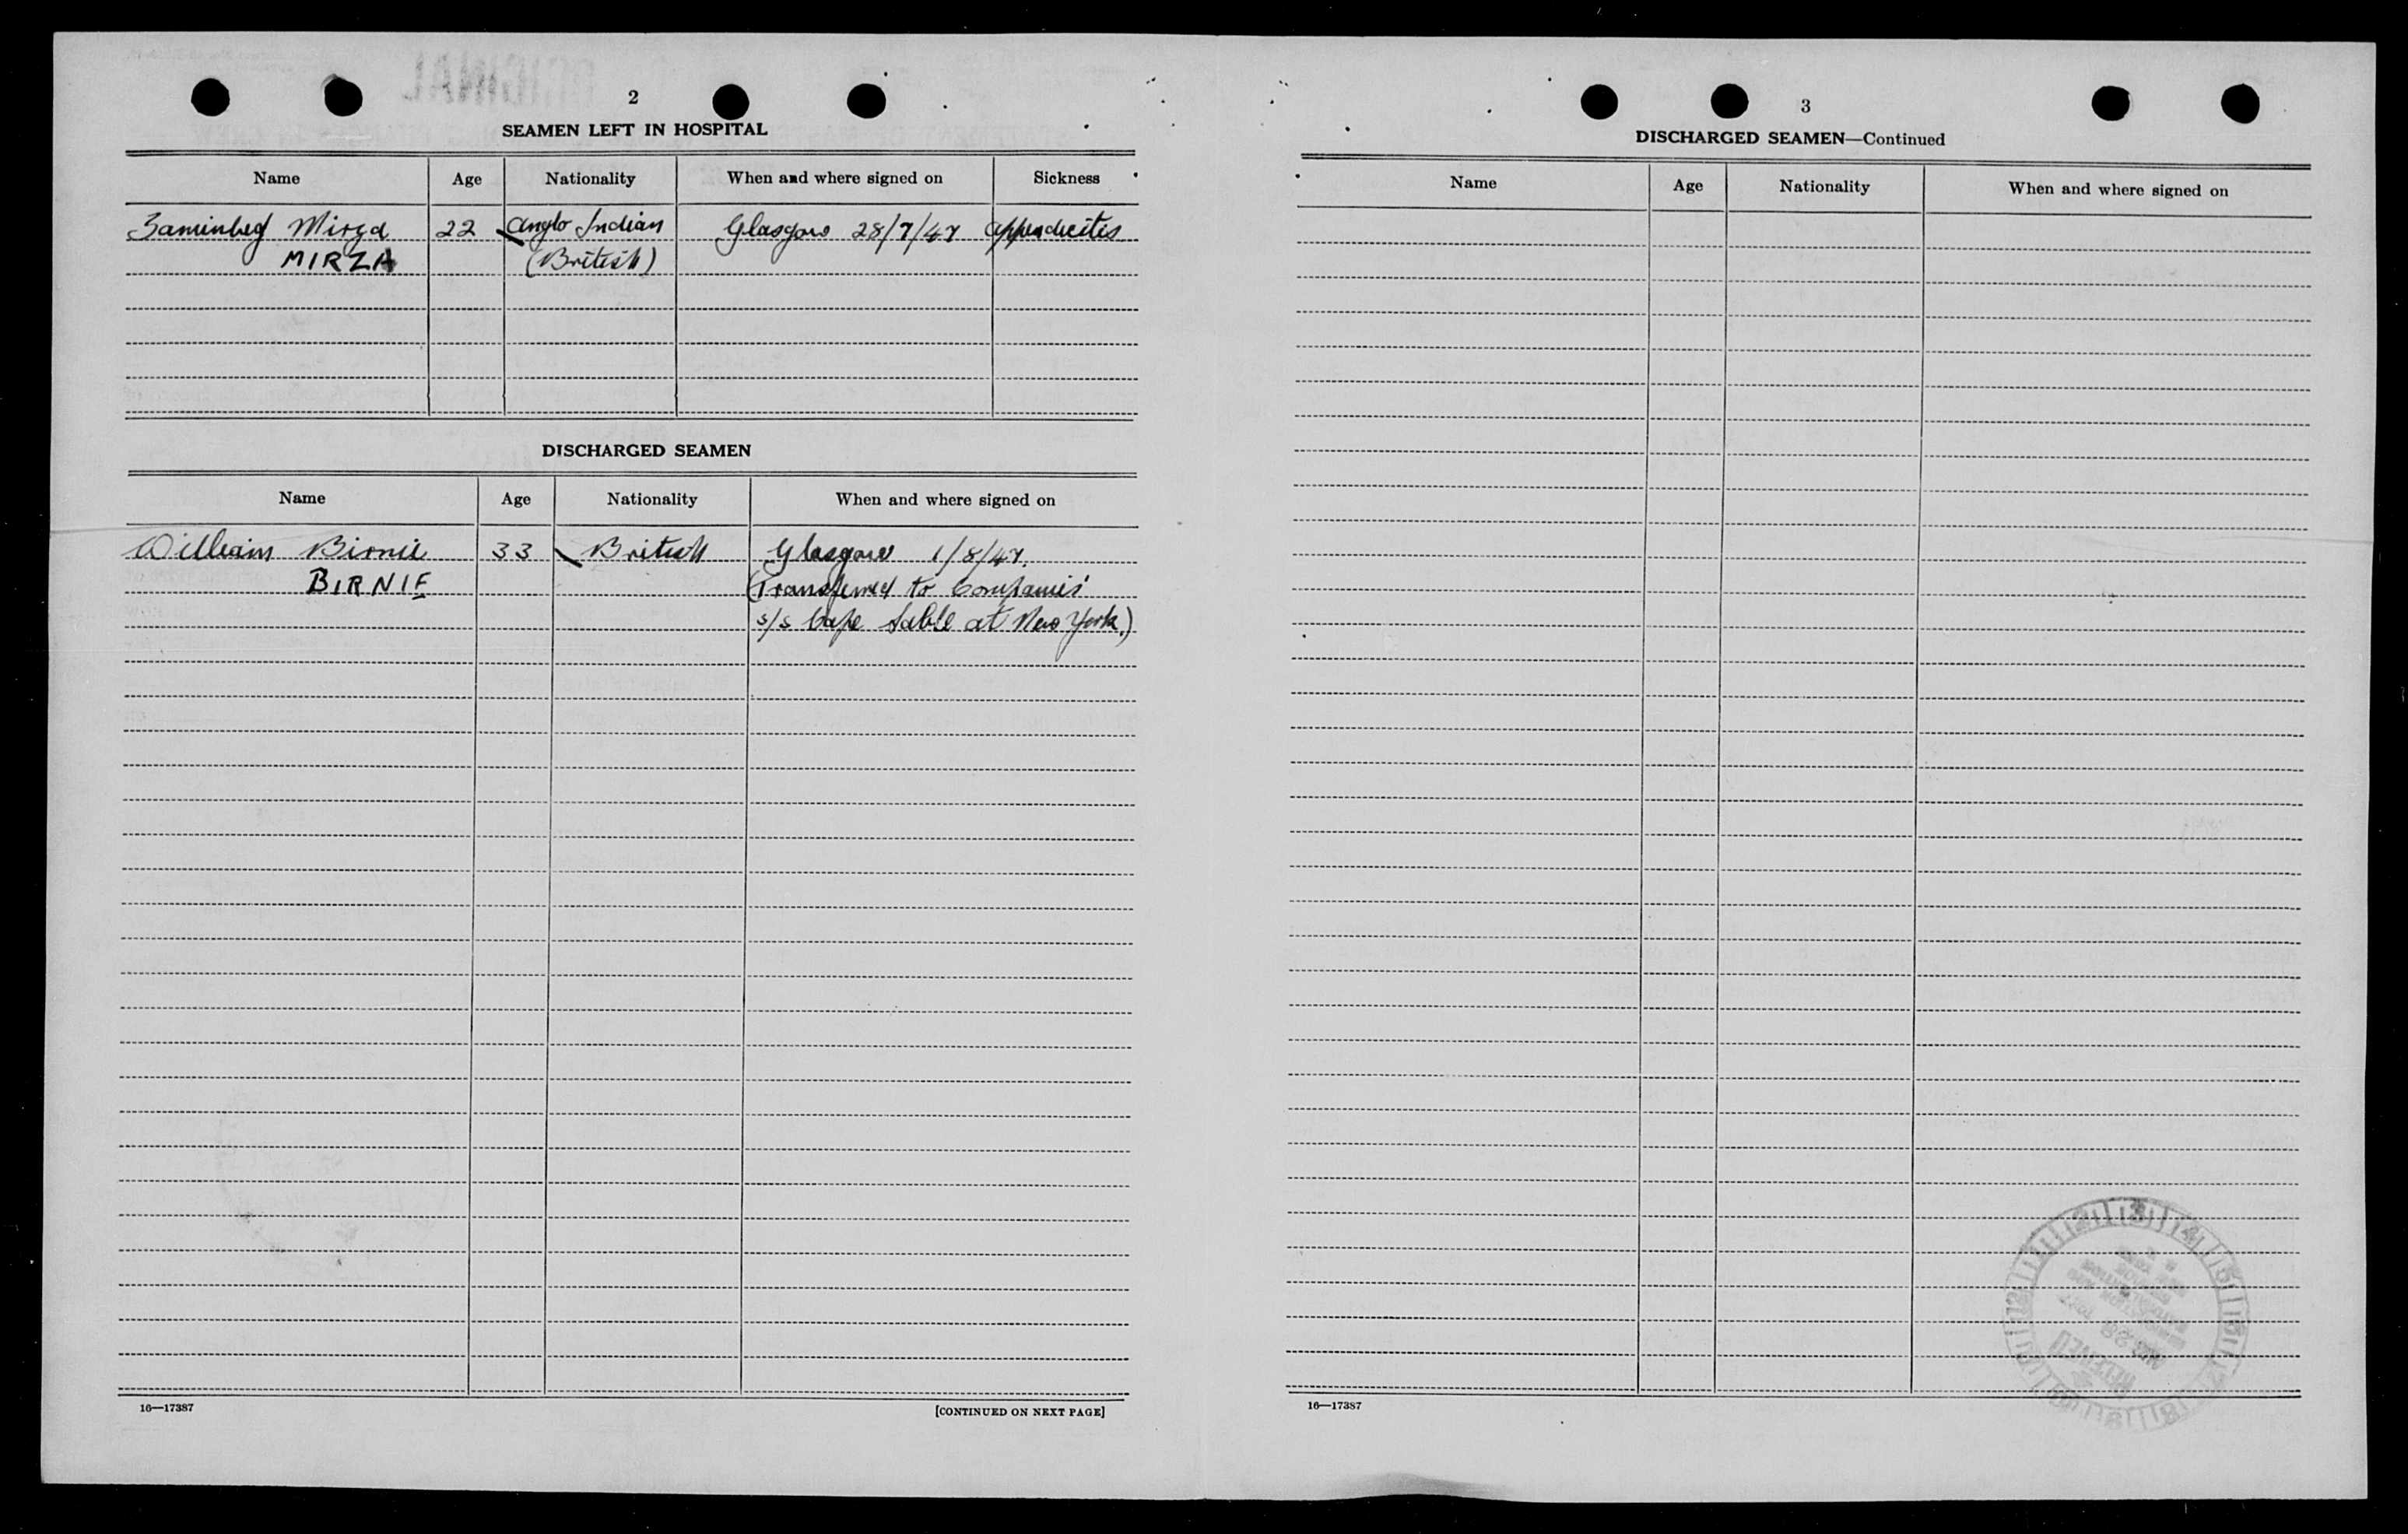 2
SEAMEN LEFT IN HOSPITAL
Name Age Nationality When and where signed on Sickness
Zaminbeg Mirza 22 Anglo Indian Glasgow 28/7/47 Appendicitis
MIRZA (British)
DISCHARGED SEAMEN
Name Age Nationality When and where signed on
William Birnie 33 British Glasgow 1/8/47.
BIRNIE (Transferred to Companies'
s/s Cape Sable at New York.)
16—17387 [CONTINUED ON NEXT PAGE]
3
DISCHARGED SEAMEN—Continued
Name Age Nationality When and where signed on
RECEIVED
AUG 28 1947
16—17387